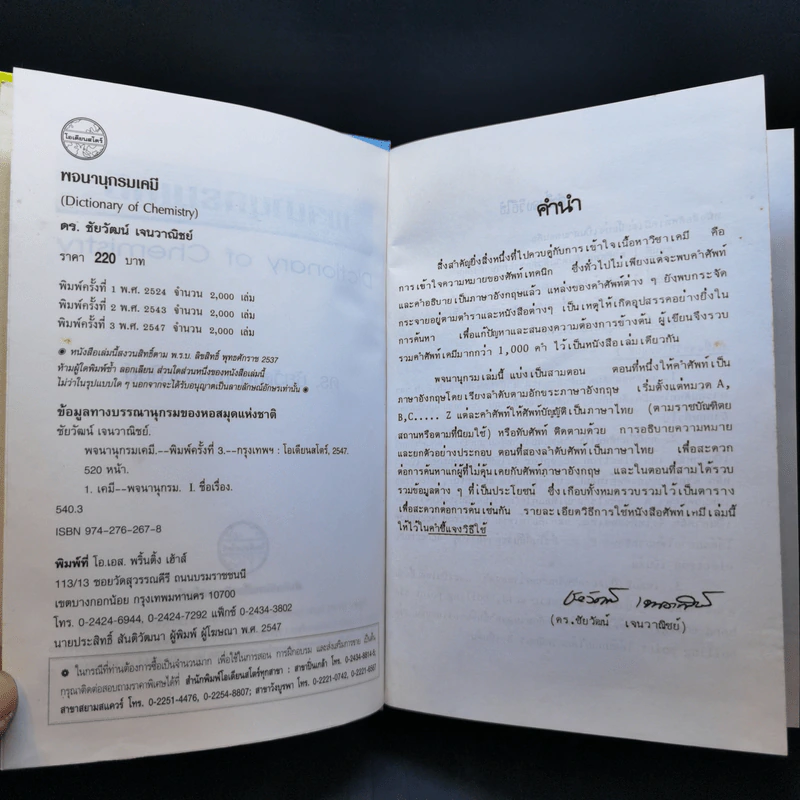 โอเดียนสโตร์
พจนานุกรมเคมี
(Dictionary of Chemistry)
ดร. ชัยวัฒน์ เจนวาณิชย์
ราคา 220 บาท
พิมพ์ครั้งที่ 1 พ.ศ. 2524 จำนวน 2,000 เล่ม
พิมพ์ครั้งที่ 2 พ.ศ. 2543 จำนวน 2,000 เล่ม
พิมพ์ครั้งที่ 3 พ.ศ. 2547 จำนวน 2,000 เล่ม
หนังสือเล่มนี้สงวนสิทธิ์ตาม พ.ร.บ. ลิขสิทธิ์ พุทธศักราช 2537
ห้ามผู้ใดพิมพ์ซ้ำ ลอกเลียน ส่วนใดส่วนหนึ่งของหนังสือเล่มนี้
ไม่ว่าในรูปแบบใด ๆ นอกจากจะได้รับอนุญาตเป็นลายลักษณ์อักษรเท่านั้น
ข้อมูลทางบรรณานุกรมของหอสมุดแห่งชาติ
ชัยวัฒน์ เจนวาณิชย์.
พจนานุกรมเคมี.--พิมพ์ครั้งที่ 3.--กรุงเทพฯ : โอเดียนสโตร์, 2547.
520 หน้า.
1. เคมี--พจนานุกรม. I. ชื่อเรื่อง.
540.3
ISBN 974-276-267-8
พิมพ์ที่ โอ.เอส. พริ้นติ้ง เฮ้าส์
113/13 ซอยวัดสุวรรณคีรี ถนนบรมราชชนนี
เขตบางกอกน้อย กรุงเทพมหานคร 10700
โทร. 0-2424-6944, 0-2424-7292 แฟ็กซ์ 0-2434-3802
นายประสิทธิ์ สันติวัฒนา ผู้พิมพ์ ผู้โฆษณา พ.ศ. 2547
ในกรณีที่ท่านต้องการซื้อเป็นจำนวนมาก เพื่อใช้ในการสอน การฝึกอบรม และส่งเสริมการขาย เป็นต้น
กรุณาติดต่อสอบถามราคาพิเศษได้ที่ สำนักพิมพ์โอเดียนสโตร์ทุกสาขา : สาขาปิ่นเกล้า โทร. 0-2434-8814-5,
สาขาสยามสแควร์ โทร. 0-2251-4476, 0-2254-8807; สาขาวังบูรพา โทร. 0-2221-0742,
คำนำ
สิ่งสำคัญยิ่งสิ่งหนึ่งที่ไปควบคู่กับการเข้าใจเนื้อหาวิชาเคมี คือ
การเข้าใจความหมายของศัพท์เทคนิก ซึ่งทั่วไปไม่เพียงแต่จะพบคำศัพท์
และคำอธิบายเป็นภาษาอังกฤษแล้ว แหล่งของคำศัพท์ต่าง ๆ ยังพบกระจัด
กระจายอยู่ตามตำราและหนังสือต่างๆ เป็นเหตุให้เกิดอุปสรรคอย่างยิ่งใน
การค้นหา เพื่อแก้ปัญหาและสนองความต้องการข้างต้น ผู้เขียนจึงรวบ
รวมคำศัพท์เคมีมากกว่า 1,000 คำ ไว้เป็นหนังสือเล่มเดียวกัน
พจนานุกรมเล่มนี้ แบ่งเป็นสามตอน ตอนที่หนึ่งให้คำศัพท์เป็น
ภาษาอังกฤษโดยเรียงลำดับตามอักขระภาษาอังกฤษ เริ่มตั้งแต่หมวด A,
B,C..... Z แต่ละคำศัพท์ให้ศัพท์บัญญัติเป็นภาษาไทย (ตามราชบัณฑิตย
สถานหรือตามที่นิยมใช้) หรือทับศัพท์ ติดตามด้วย การอธิบายความหมาย
และยกตัวอย่างประกอบ ตอนที่สองลำดับศัพท์เป็นภาษาไทย เพื่อสะดวก
ต่อการค้นหาแก่ผู้ที่ไม่คุ้นเคยกับศัพท์ภาษาอังกฤษ และในตอนที่สามได้รวบ
รวมข้อมูลต่าง ๆ ที่เป็นประโยชน์ ซึ่งเกือบทั้งหมดรวบรวมไว้เป็นตาราง
เพื่อสะดวกต่อการค้นเช่นกัน รายละเอียดวิธีการใช้หนังสือศัพท์เคมีเล่มนี้
ให้ไว้ในคำชี้แจงวิธีใช้
ชัยวัฒน์ เจนวาณิชย์
(ดร.ชัยวัฒน์ เจนวาณิชย์)